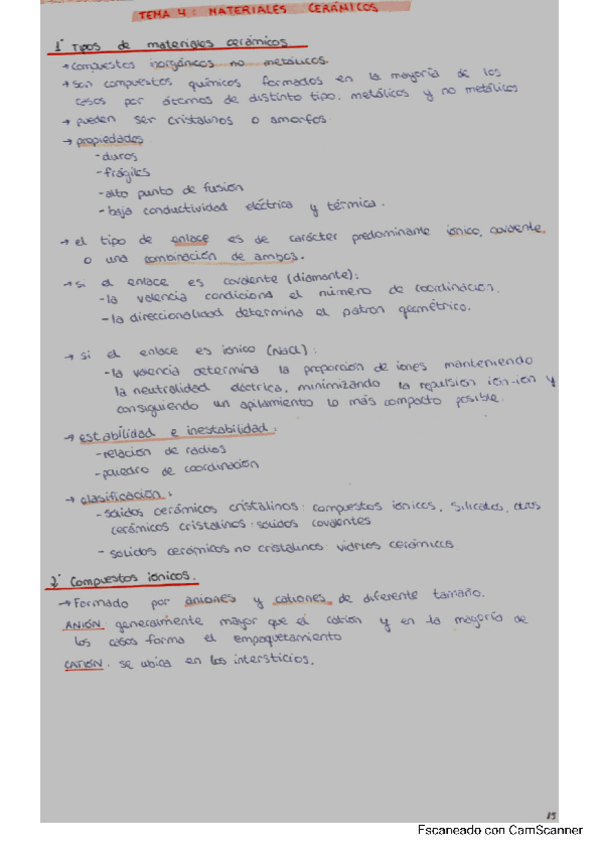 TEMA 4: MATERIALES CERÁMICOS
1. Tipos de materiales cerámicos
→ compuestos inorgánicos no metálicos.
→ son compuestos químicos formados en la mayoría de los
casos por átomos de distinto tipo: metálicos y no metálicos
→ pueden ser cristalinos o amorfos.
→ propiedades
- duros
- frágiles
- alto punto de fusión
- baja conductividad eléctrica y térmica.
→ el tipo de enlace es de carácter predominante iónico, covalente,
o una combinación de ambos.
→ si el enlace es covalente (diamante):
- la valencia condiciona el número de coordinación.
- la direccionalidad determina el patrón geométrico.
→ si el enlace es iónico (NaCl):
- la valencia determina la proporción de iones manteniendo
la neutralidad eléctrica, minimizando la repulsión ión-ión y
consiguiendo un apilamiento lo más compacto posible.
→ estabilidad e inestabilidad:
- relación de radios
- poliedro de coordinación
→ clasificación:
- sólidos cerámicos cristalinos: compuestos iónicos, silicatos, otros
cerámicos cristalinos. sólidos covalentes
- sólidos cerámicos no cristalinos: vidrios cerámicos
2. Compuestos iónicos.
→ Formado por aniones y cationes de diferente tamaño.
ANIÓN: generalmente mayor que el catión y en la mayoría de
los casos forma el empaquetamiento
CATIÓN: se ubica en los intersticios.
Escaneado con CamScanner